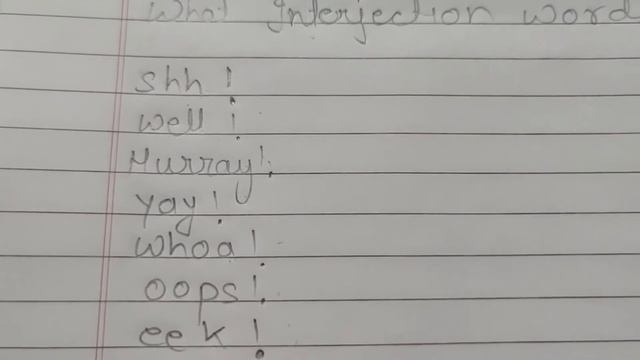 What Interjection word
shh !
well !
Hurray!
yay !
whoa!
oops!
eek !